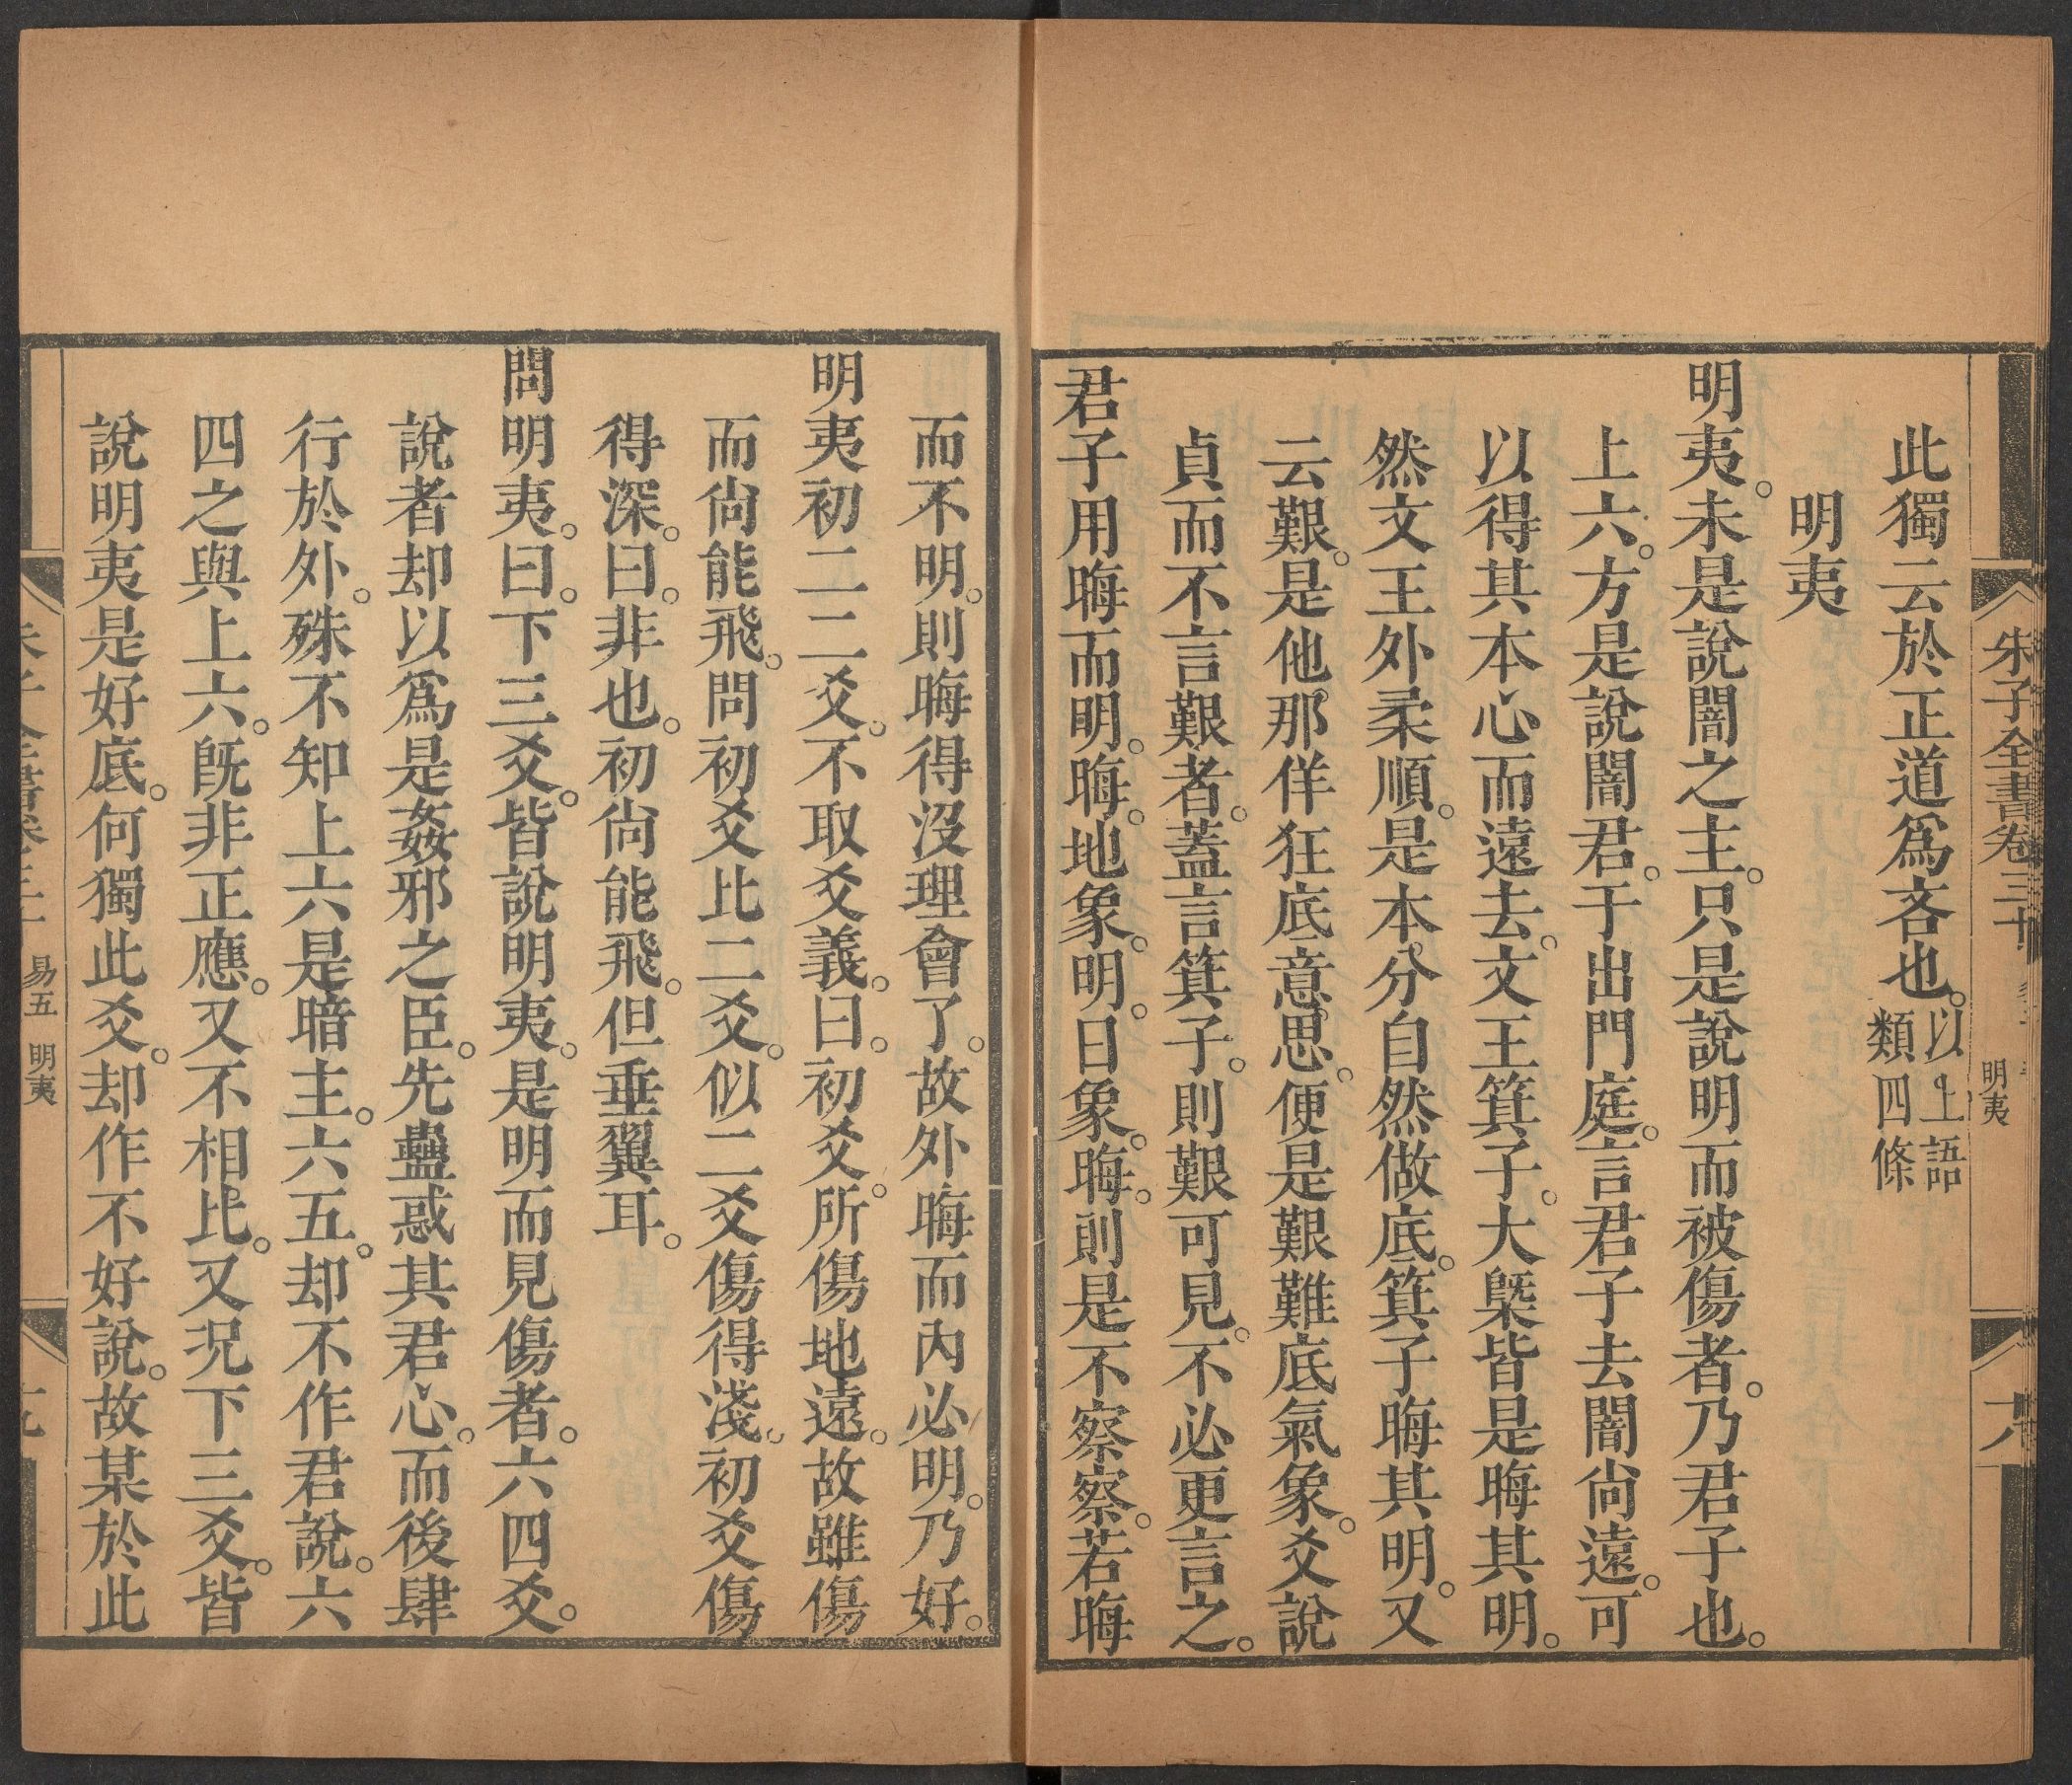 朱子全書卷三十
明夷
此獨云於正道爲吝也。以上語
類四條
明夷
明夷。未是說闇之主。只是說明而被傷者。乃君子也。
上六。方是說闇君。于出門庭。言君子去闇尚遠。可
以得其本心而遠去。文王箕子。大槩皆是晦其明。
然文王外柔順。是本分自然做底。箕子晦其明。又
云艱。是他那佯狂底意思。便是艱難底氣象。爻說
貞而不言艱者。蓋言箕子。則艱可見。不必更言之。
君子用晦而明。晦。地象。明。日象。晦。則是不察察。若晦
而不明。則晦得沒理會了。故外晦而內必明。乃好。
明夷初二二爻。不取爻義。曰。初爻。所傷地遠。故雖傷
而尙能飛。問初爻比二爻。似二爻傷得淺。初爻傷
得深。曰。非也。初尙能飛。但垂翼耳。
問明夷。曰。下三爻。皆說明夷。是明而見傷者。六四爻。
說者却以爲是姦邪之臣。先蠱惑其君心。而後肆
行於外。殊不知上六是暗主。六五。却不作君說。六
四之與上六。旣非正應。又不相比。又況下三爻。皆
說明夷是好底。何獨此爻。却作不好說。故某於此
易五 明夷